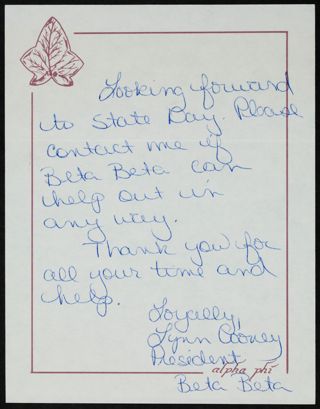 Looking forward
to State Day. Please
contact me if
Beta Beta can
help out in
any way.
Thank you for
all your time and
help.
Loyally,
Lynn Cooney
President
alpha phi
Beta Beta